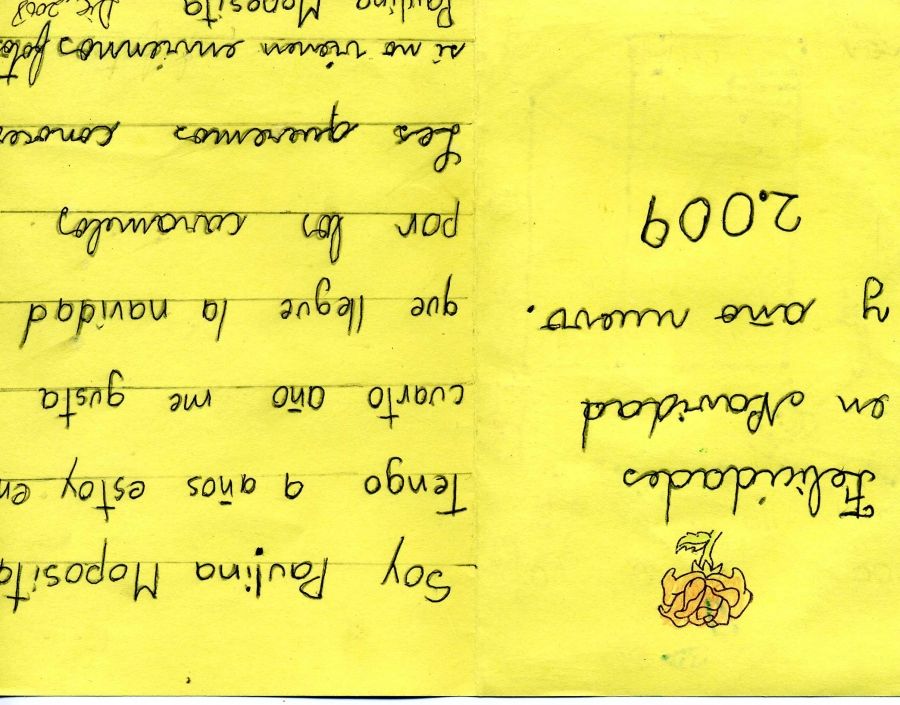 Felicidades
en Navidad
y año nuevo.
2.009
Soy Paulina Moposita
Tengo 9 años estoy en
cuarto año me gusta
que llegue la navidad
por los caramelos
Les queremos conocer
si no vienen enviennos fotos
Paulina Moposita Dic, 2008